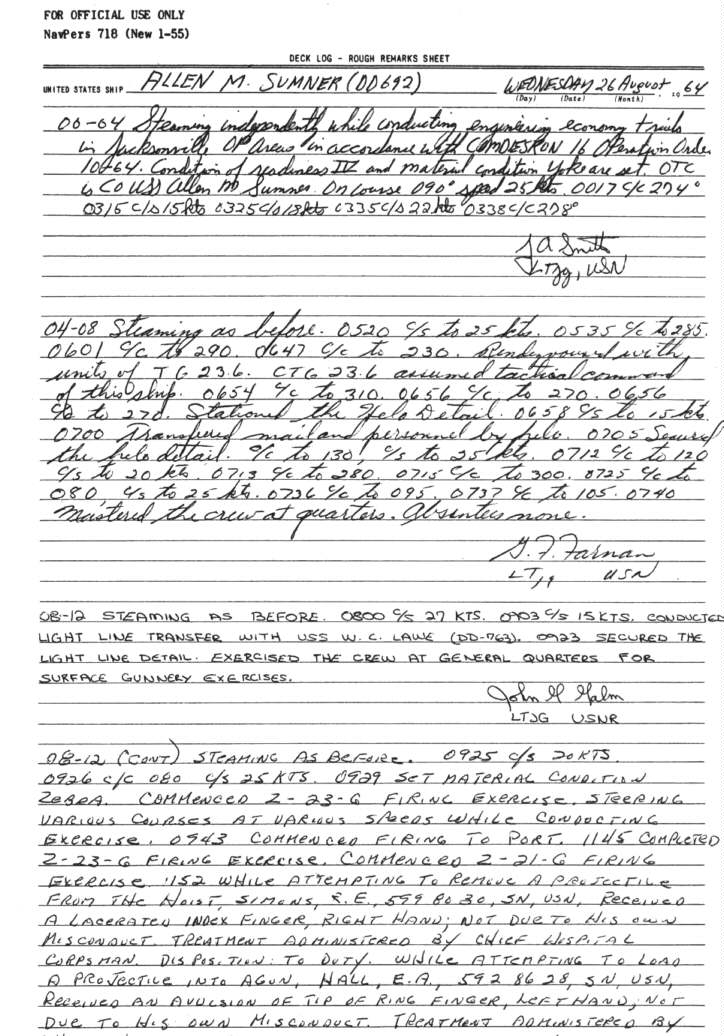 FOR OFFICIAL USE ONLY
NavPers 718 (New 1-55)
DECK LOG - ROUGH REMARKS SHEET
UNITED STATES SHIP ALLEN M. SUMNER (DD692) WEDNESDAY 26 August 19 64
(Day) (Date) (Month)
00-04 Steaming independently while conducting engineering economy trials
in Jacksonville OP Areas in accordance with COMDESRON 16 Operation Order
10-64. Condition of readiness IV and material condition Yoke are set. OTC
is CO USS Allen M Sumner. On course 090° speed 25 kts. 0017 C/C 274°
0315 C/S 15 kts 0325 C/S 18 kts 0335 C/S 22 kts 0338 C/C 278°
J A Smith
LTjg, USN
04-08 Steaming as before. 0520 C/S to 25 kts. 0535 C/C to 285.
0601 C/C to 290. 0647 C/C to 230. Rendezvoused with
units of T G 23.6. CTG 23.6 assumed tactical command
of this ship. 0654 C/C to 310. 0656 C/C to 270. 0656
C/C to 270. Stationed the Helo Detail. 0658 C/S to 15 kts.
0700 Transfered mail and personnel by helo. 0705 Secured
the helo detail. C/C to 130, C/S to 25 kts. 0712 C/C to 120
C/S to 20 kts. 0713 C/C to 280. 0715 C/C to 300. 0725 C/C to
080, C/S to 25 kts. 0736 C/C to 095. 0737 C/C to 105. 0740
Mustered the crew at quarters. Absentees none.
G. F. Farnan
LTjg USN
08-12 STEAMING AS BEFORE. 0800 C/S 27 KTS. 0903 C/S 15 KTS. CONDUCTED
LIGHT LINE TRANSFER WITH USS W. C. LAWE (DD-763). 0923 SECURED THE
LIGHT LINE DETAIL. EXERCISED THE CREW AT GENERAL QUARTERS FOR
SURFACE GUNNERY EXERCISES.
John G Galm
LTJG USNR
08-12 (CONT) STEAMING AS BEFORE. 0925 C/S 20 KTS.
0926 C/C 080 C/S 25 KTS. 0929 SET MATERIAL CONDITION
ZEBRA. COMMENCED Z-23-G FIRING EXERCISE, STEERING
VARIOUS COURSES AT VARIOUS SPEEDS WHILE CONDUCTING
EXERCISE. 0943 COMMENCED FIRING TO PORT. 1145 COMPLETED
Z-23-G FIRING EXERCISE. COMMENCED Z-21-G FIRING
EXERCISE 1152 WHILE ATTEMPTING TO REMOVE A PROJECTILE
FROM THE HOIST, SIMONS, R.E, 599 80 30, SN, USN, RECEIVED
A LACERATED INDEX FINGER, RIGHT HAND; NOT DUE TO HIS OWN
MISCONDUCT. TREATMENT ADMINISTERED BY CHIEF HOSPITAL
CORPSMAN. DISPOSITION: TO DUTY. WHILE ATTEMPTING TO LOAD
A PROJECTILE INTO A GUN, HALL, E.A., 592 86 28, SN, USN,
RECEIVED AN AVULSION OF TIP OF RING FINGER, LEFT HAND; NOT
DUE TO HIS OWN MISCONDUCT. TREATMENT ADMINISTERED BY